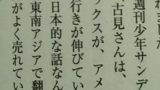 週刊少年サンデ
古見さんは、
ックスが、アメ
行きが伸びてい
日本的な話なん
東南アジアで翻
がよく売れてい